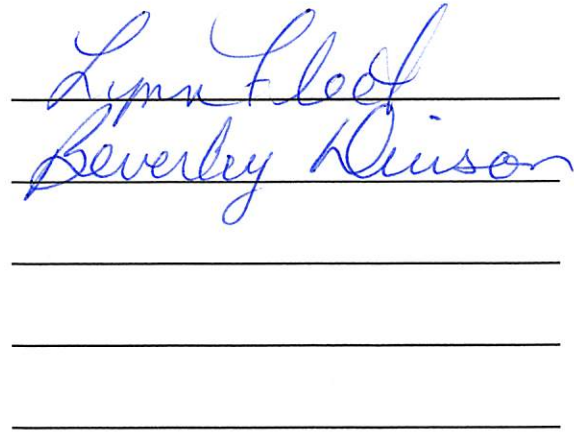 Lynn Floot
Beverley Denison